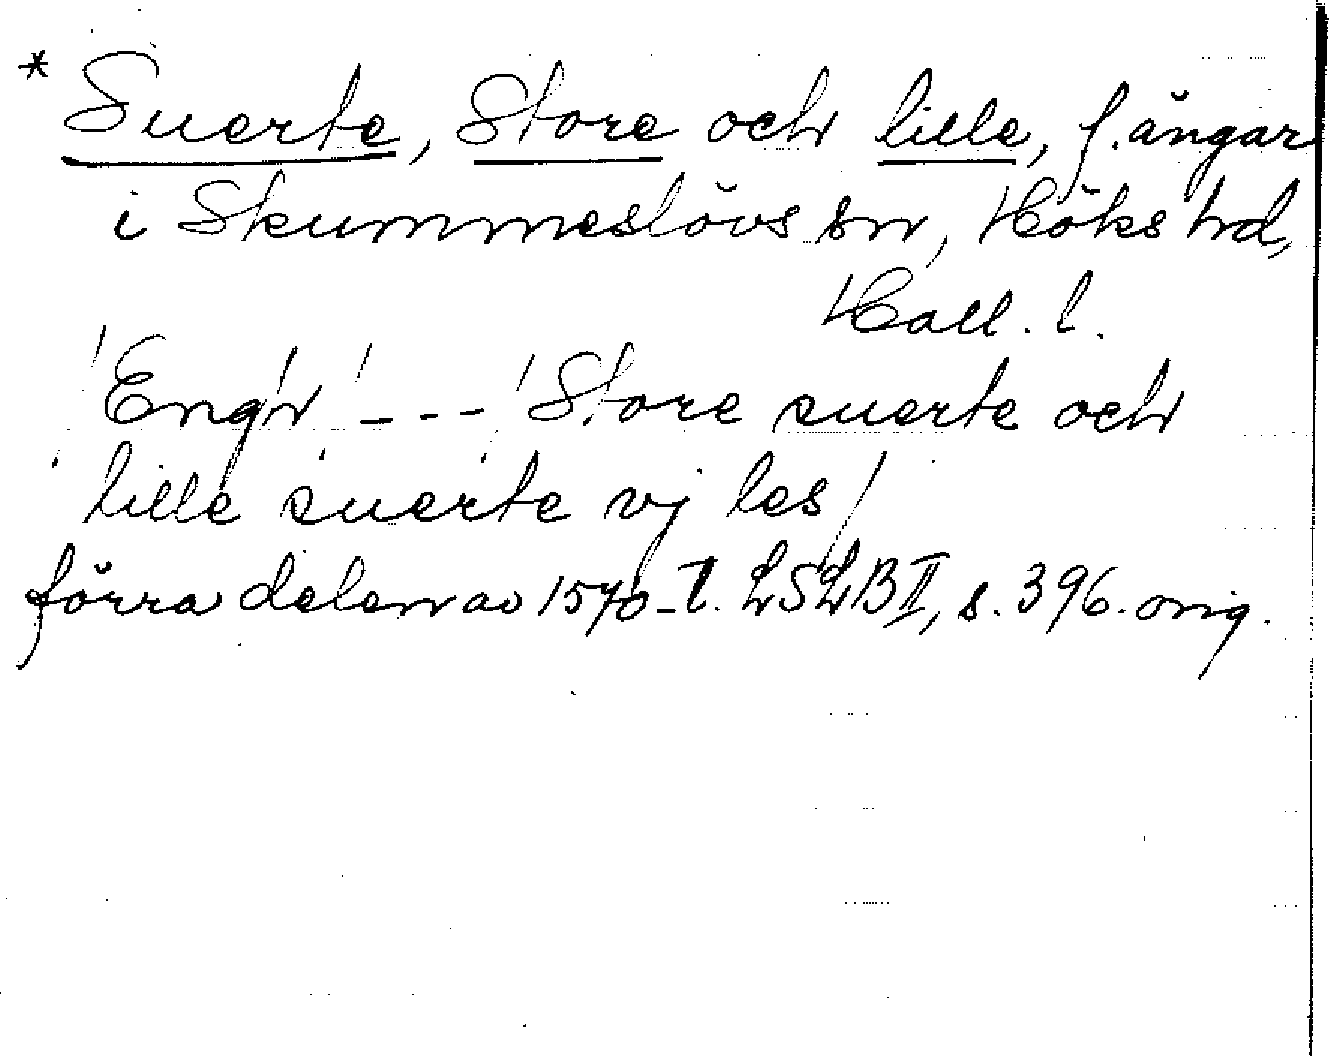 * Suerte, Store och lille, f. ängar
i Skummeslövs sn, Höks hd,
Hall. l.
'Engh' - - - 'Store suerte och
lille suerte vj les'
förra delen av 1570-t. LSLB II, s. 396. orig.